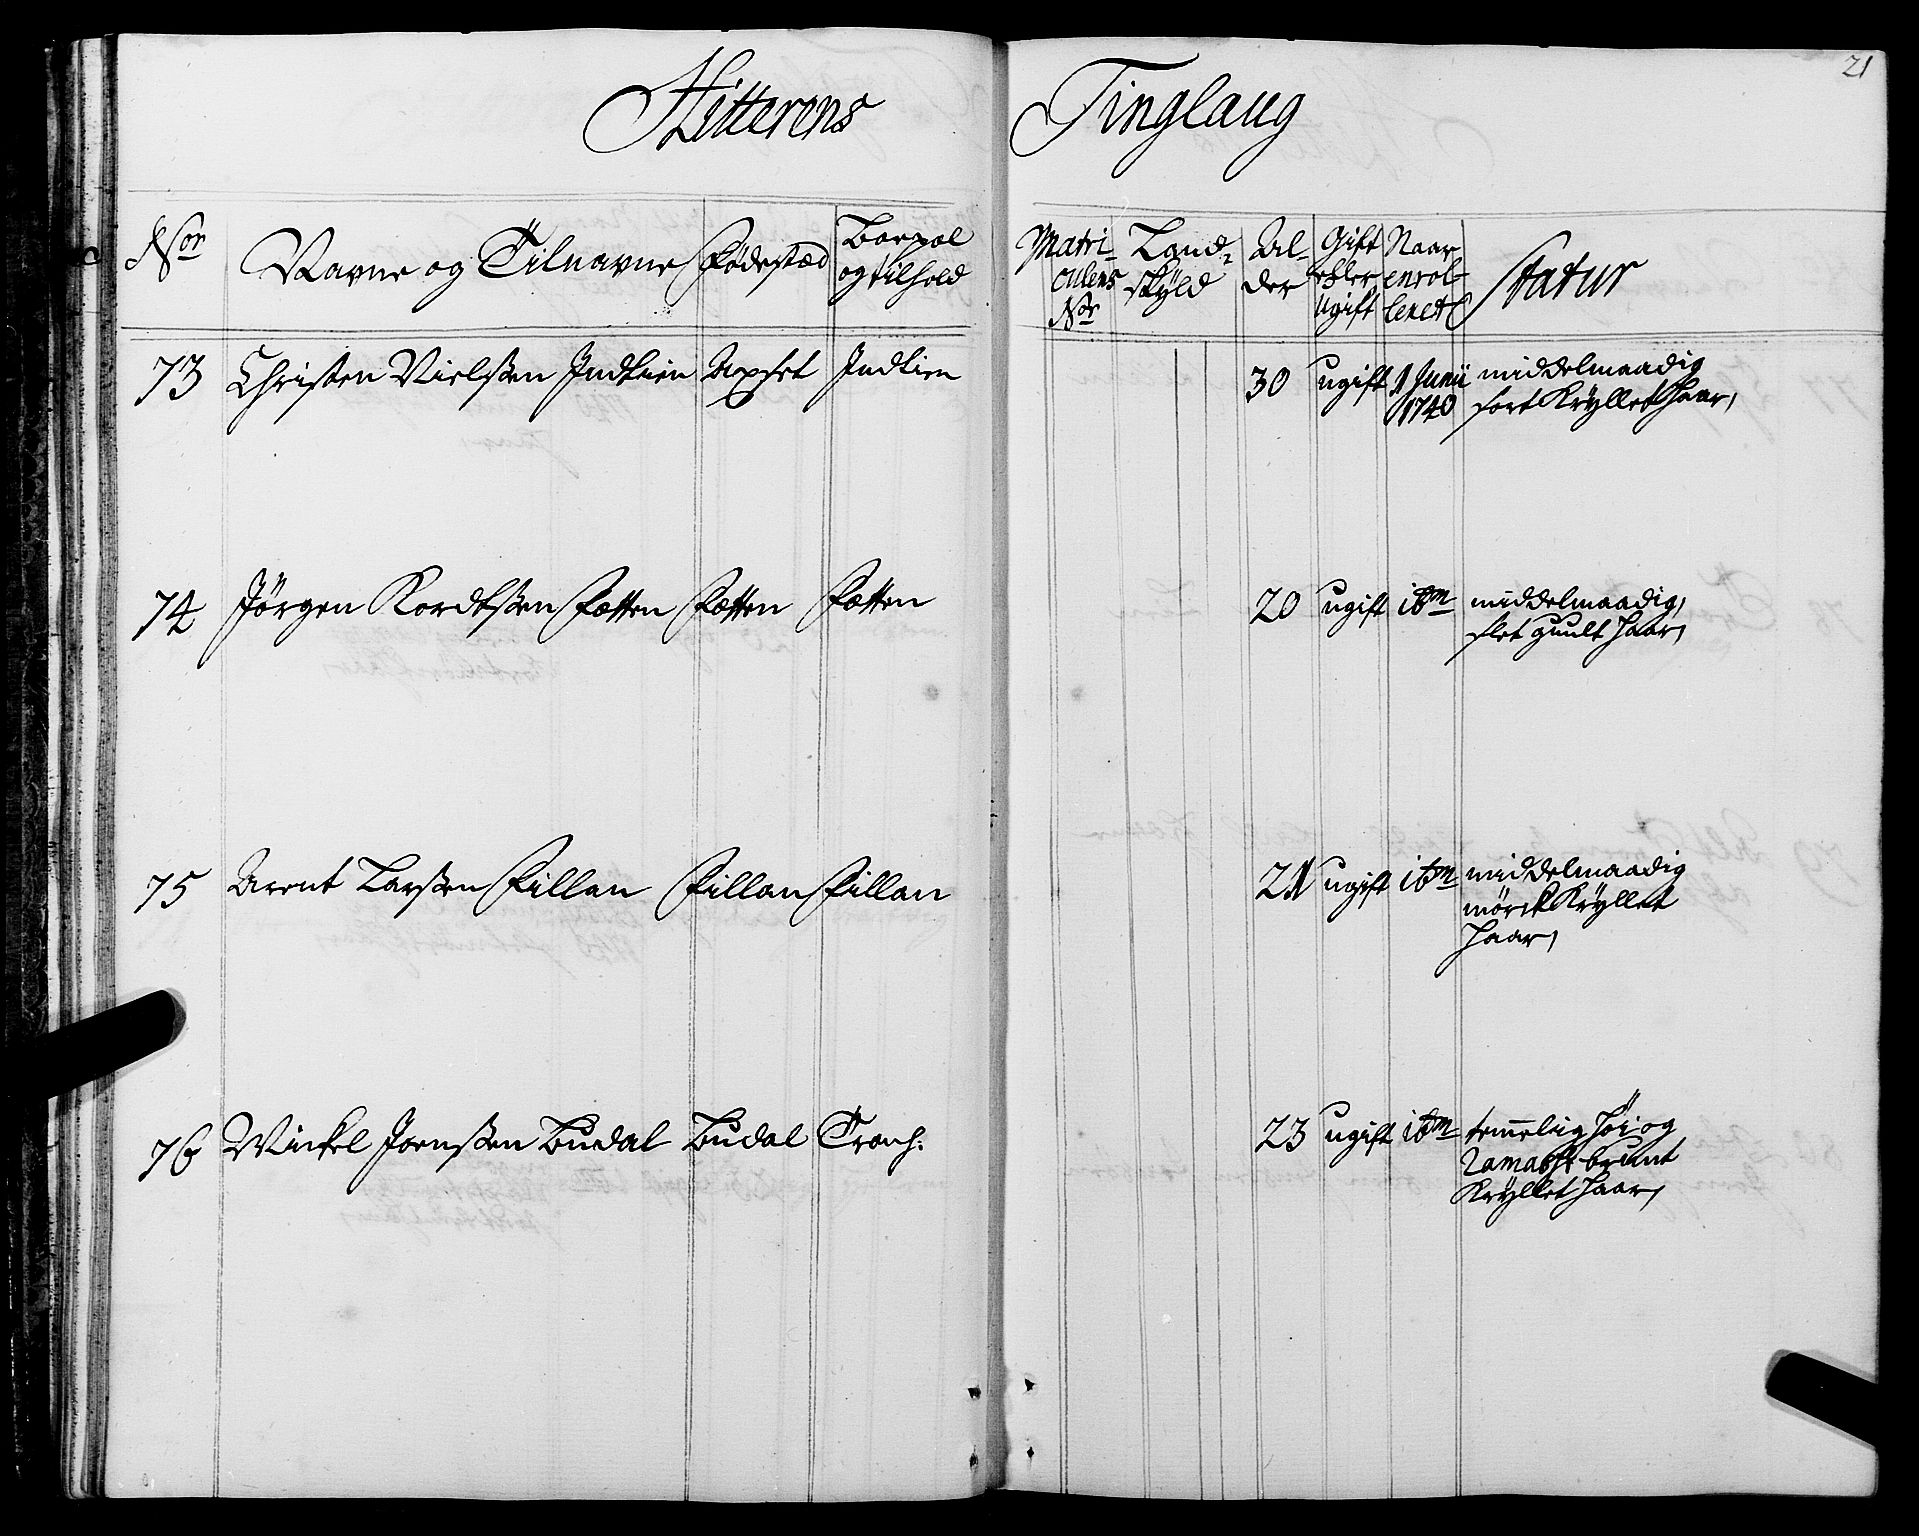 21
Hitterens Tinglaug
Nor Navne og Tilnavne Fødestæd Boepæl og tilhold Matriculens Nor Landskÿld Alder Gift eller Ugift Naar enrolleret Statur
73 Christen Nielssen Indtien Ulvset Indtien 30 ugift 1 Junii 1740 middelmaadig
sort Krÿllet Haar,
74 Jørgen Kordtssen Fætten Fætten Fætten 20 ugift itm middelmaadig,
slet guult Haar,
75 Arent Larssen Fillan Fillan Fillan 21 ugift itm middelmaadig
mørck Krÿllet
Haar,
76 Winkel Joenssen Budal Budal Tronh: 23 ugift itm temmelig høi og
ramask brunt
Krÿllet Haar,